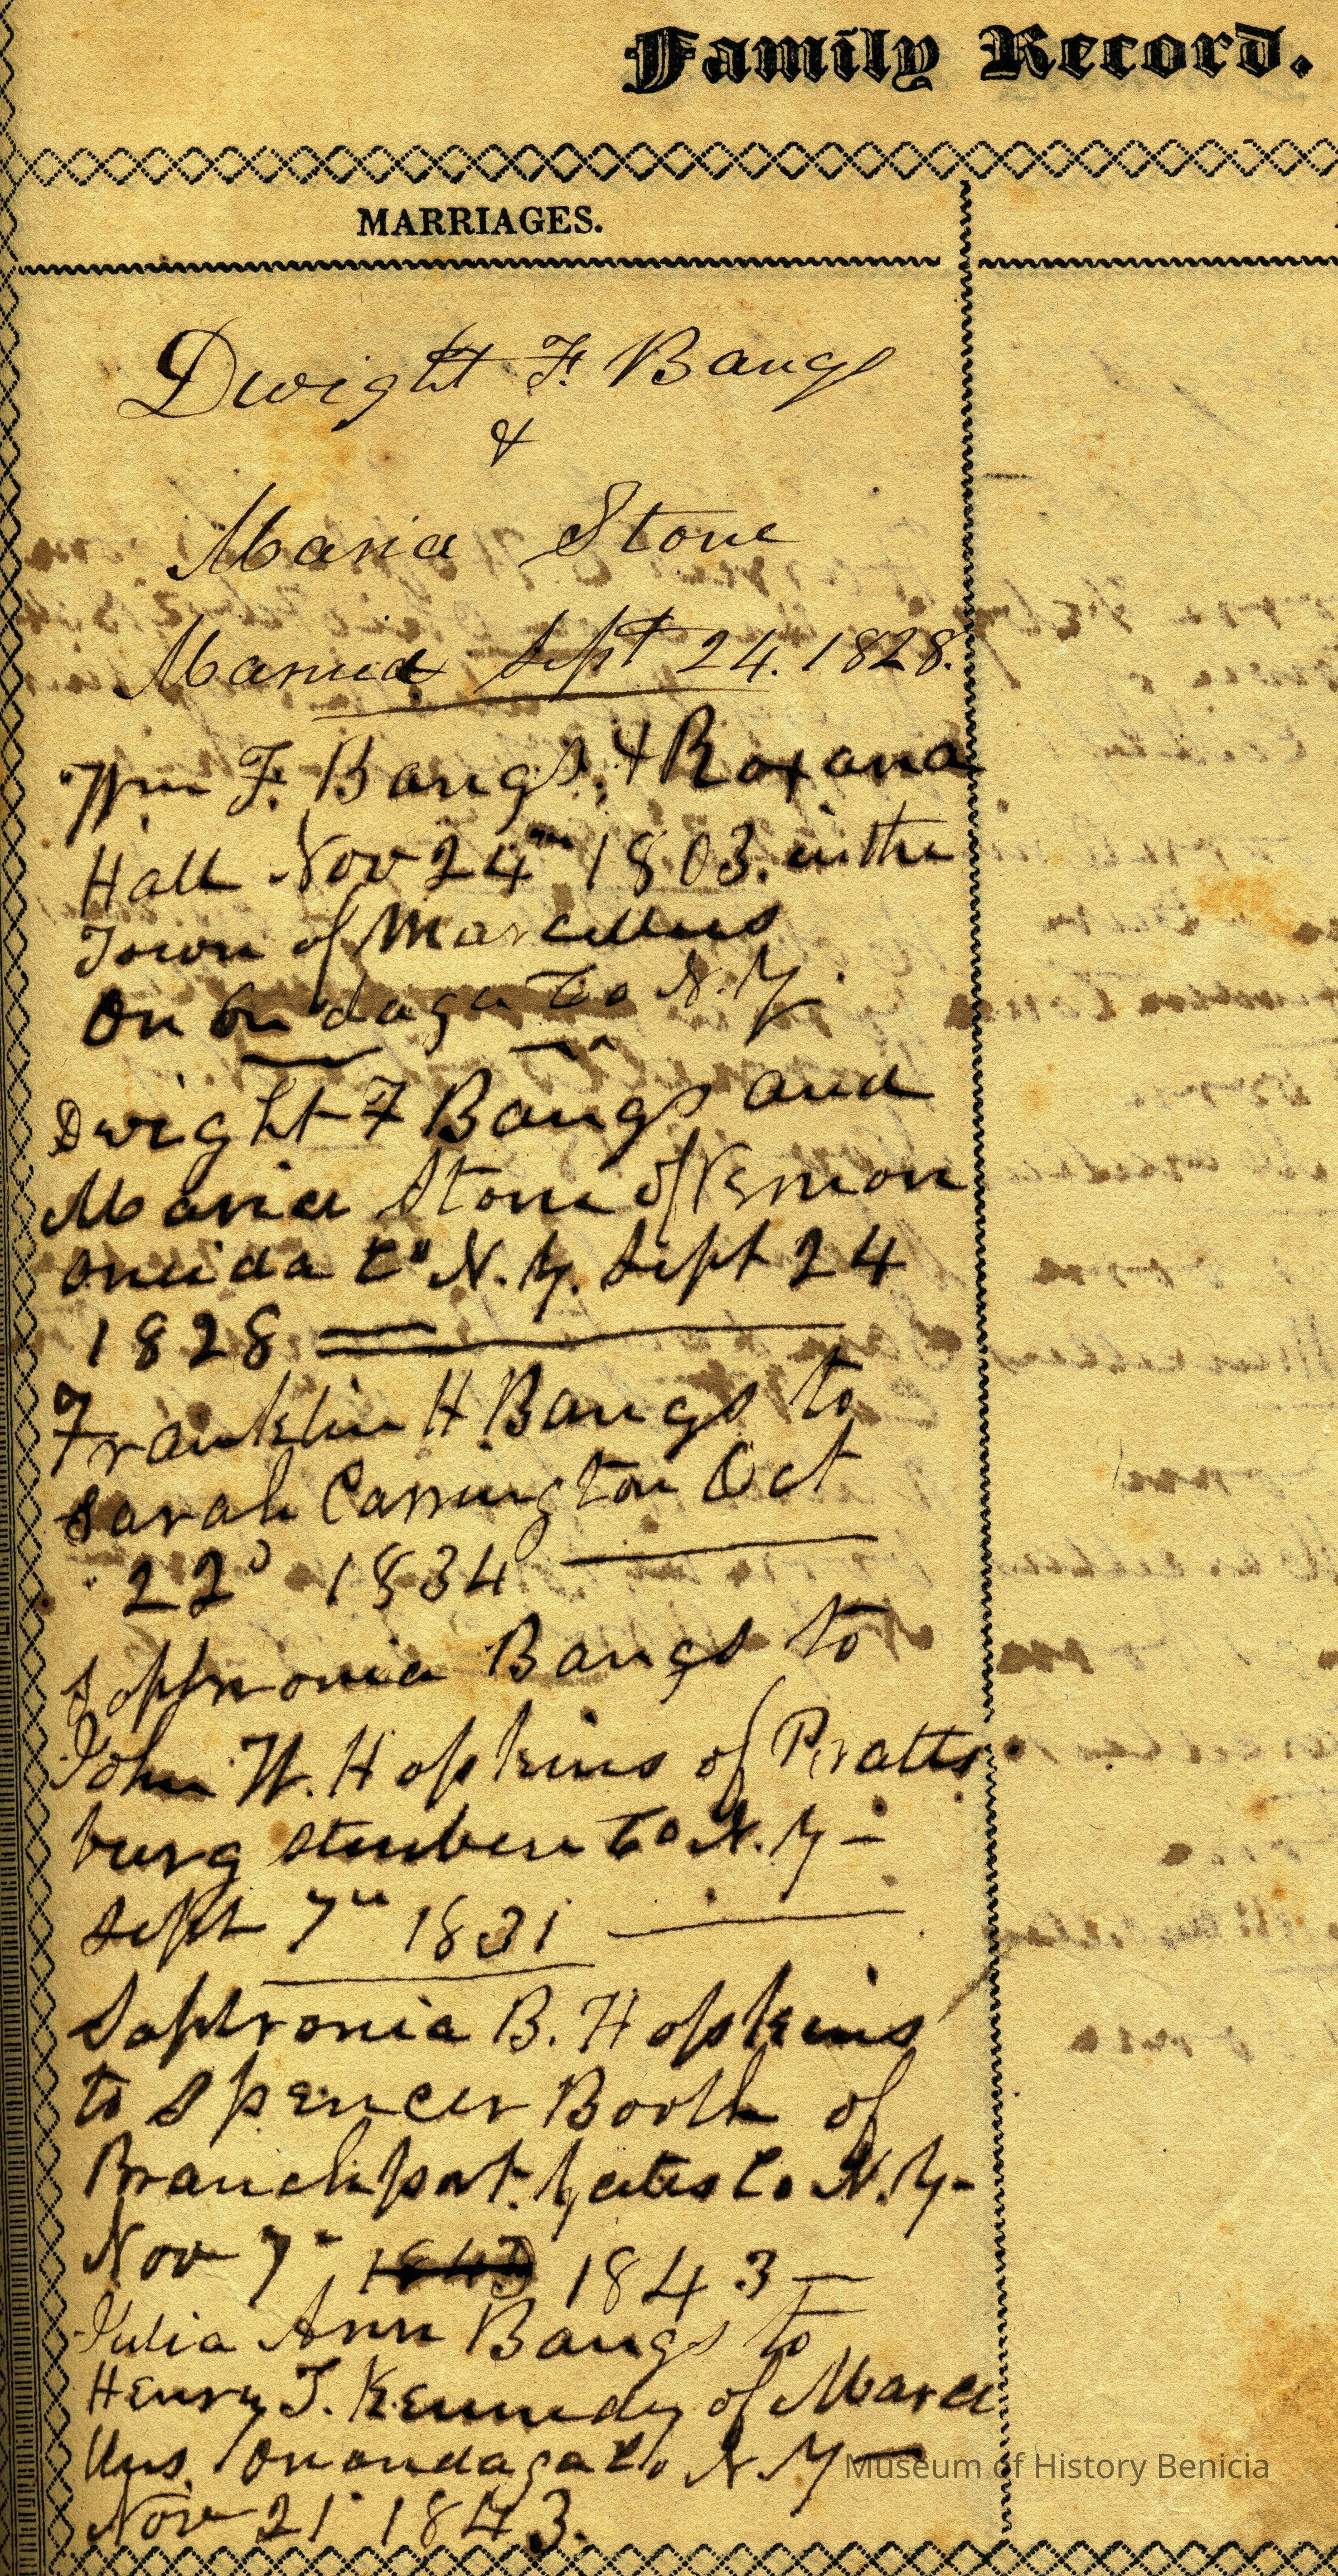 Family Record.
MARRIAGES.
Dwight F. Bangs
&
Maria Stone
Married Sept 24. 1828.
Wm F. Bangs, & Roxana
Hall Nov 24th 1803. in the
Town of Marcellus
Onondaga Co N.Y.
Dwight F Bangs and
Maria Stone of Vernon
Oneida Co N.Y. Sept 24
1828
Franklin H. Bangs to
Sarah Carrington Oct
22d 1834
Sophronia Bangs to
John W. Hopkins of Pratts
burg Steuben Co N.Y -
Sept 7th 1831
Sophronia B. Hopkins
to Spencer Booth of
Branchport. Yates Co N.Y -
Nov 7 1843 -
Julia Ann Bangs to
Henry T. Kennedy of Marce
llus. Onondaga Co N Y -
Nov 21 1843.
Museum of History Benicia